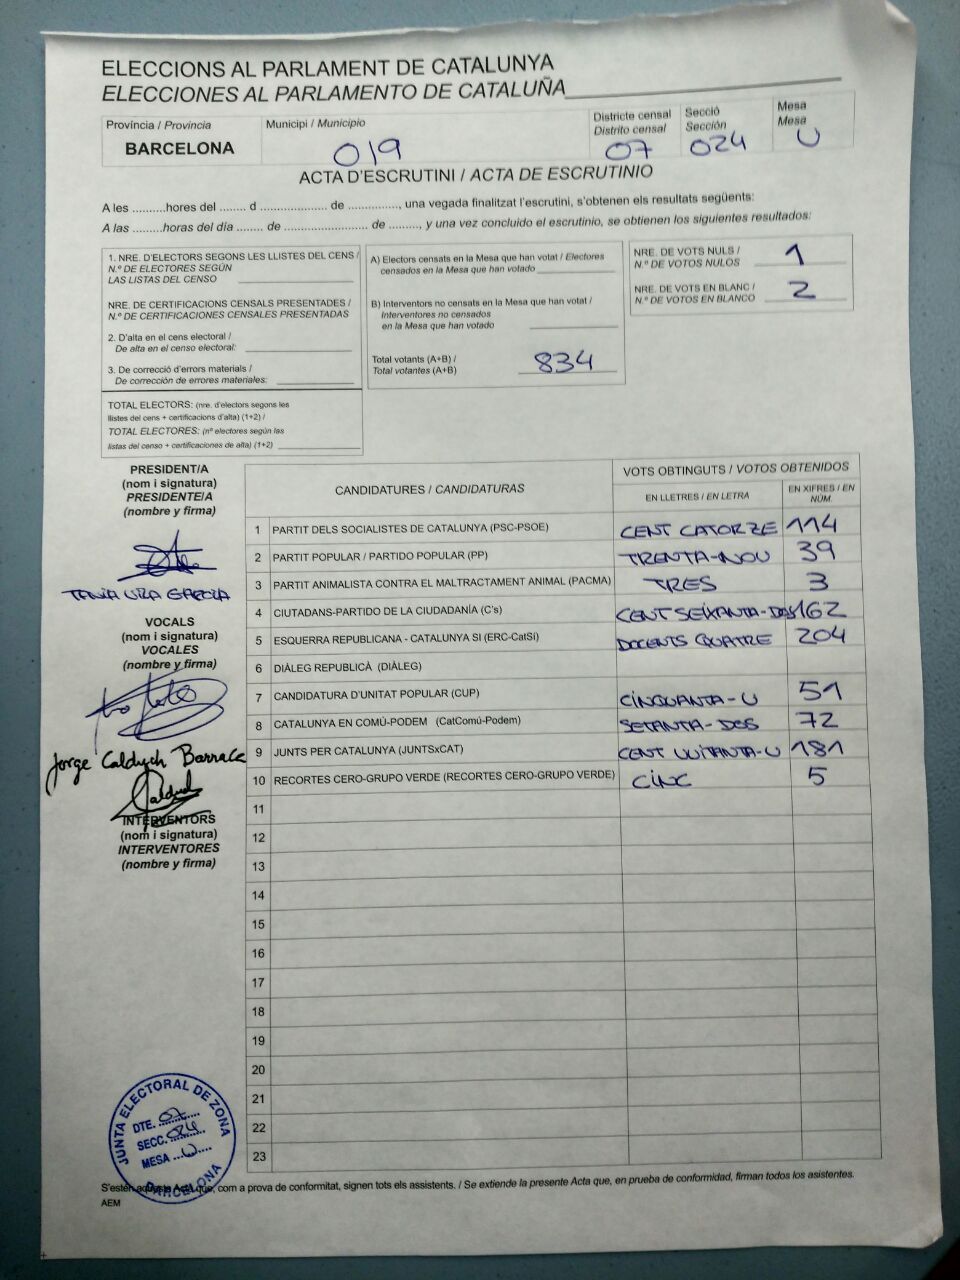 ELECCIONS AL PARLAMENT DE CATALUNYA
ELECCIONES AL PARLAMENTO DE CATALUÑA
Província / Provincia
BARCELONA
Municipi / Municipio
019
Districte censal
Distrito censal
07
Secció
Sección
024
Mesa
Mesa
U
ACTA D'ESCRUTINI / ACTA DE ESCRUTINIO
A les ..........hores del ........ d .................... de ..............., una vegada finalitzat l'escrutini, s'obtenen els resultats següents:
A las .........horas del día ........ de ......................... de ........., y una vez concluido el escrutinio, se obtienen los siguientes resultados:
1. NRE. D'ELECTORS SEGONS LES LLISTES DEL CENS /
N.º DE ELECTORES SEGÚN
LAS LISTAS DEL CENSO
NRE. DE CERTIFICACIONS CENSALS PRESENTADES /
N.º DE CERTIFICACIONES CENSALES PRESENTADAS
2. D'alta en el cens electoral /
De alta en el censo electoral:
3. De correcció d'errors materials /
De corrección de errores materiales:
TOTAL ELECTORS: (nre. d'electors segons les
llistes del cens + certificacions d'alta) (1+2) /
TOTAL ELECTORES: (nº electores según las
listas del censo + certificaciones de alta) (1+2)
A) Electors censats en la Mesa que han votat / Electores
censados en la Mesa que han votado
B) Interventors no censats en la Mesa que han votat /
Interventores no censados
en la Mesa que han votado
Total votants (A+B) /
Total votantes (A+B)
834
NRE. DE VOTS NULS /
N.º DE VOTOS NULOS
1
NRE. DE VOTS EN BLANC /
N.º DE VOTOS EN BLANCO
2
PRESIDENT/A
(nom i signatura)
PRESIDENTE/A
(nombre y firma)
TANIA URA GARCIA
VOCALS
(nom i signatura)
VOCALES
(nombre y firma)
Jorge Caldych Barrace
INTERVENTORS
(nom i signatura)
INTERVENTORES
(nombre y firma)
CANDIDATURES / CANDIDATURAS
VOTS OBTINGUTS / VOTOS OBTENIDOS
EN LLETRES / EN LETRA
EN XIFRES / EN NÚM.
1 PARTIT DELS SOCIALISTES DE CATALUNYA (PSC-PSOE) CENT CATORZE 114
2 PARTIT POPULAR / PARTIDO POPULAR (PP) TRENTA-NOU 39
3 PARTIT ANIMALISTA CONTRA EL MALTRACTAMENT ANIMAL (PACMA) TRES 3
4 CIUTADANS-PARTIDO DE LA CIUDADANÍA (C's) CENT SEIXANTA-DOS 162
5 ESQUERRA REPUBLICANA - CATALUNYA SI (ERC-CatSí) DOCENTS QUATRE 204
6 DIÀLEG REPUBLICÀ (DIÀLEG)
7 CANDIDATURA D'UNITAT POPULAR (CUP) CINQUANTA-U 51
8 CATALUNYA EN COMÚ-PODEM (CatComú-Podem) SETANTA-DOS 72
9 JUNTS PER CATALUNYA (JUNTSxCAT) CENT VUITANTA-U 181
10 RECORTES CERO-GRUPO VERDE (RECORTES CERO-GRUPO VERDE) CINC 5
11
12
13
14
15
16
17
18
19
20
21
22
23
JUNTA ELECTORAL DE ZONA
DTE. 07
SECC. 024
MESA U
BARCELONA
S'estén aquesta Acta que, com a prova de conformitat, signen tots els assistents. / Se extiende la presente Acta que, en prueba de conformidad, firman todos los asistentes.
AEM